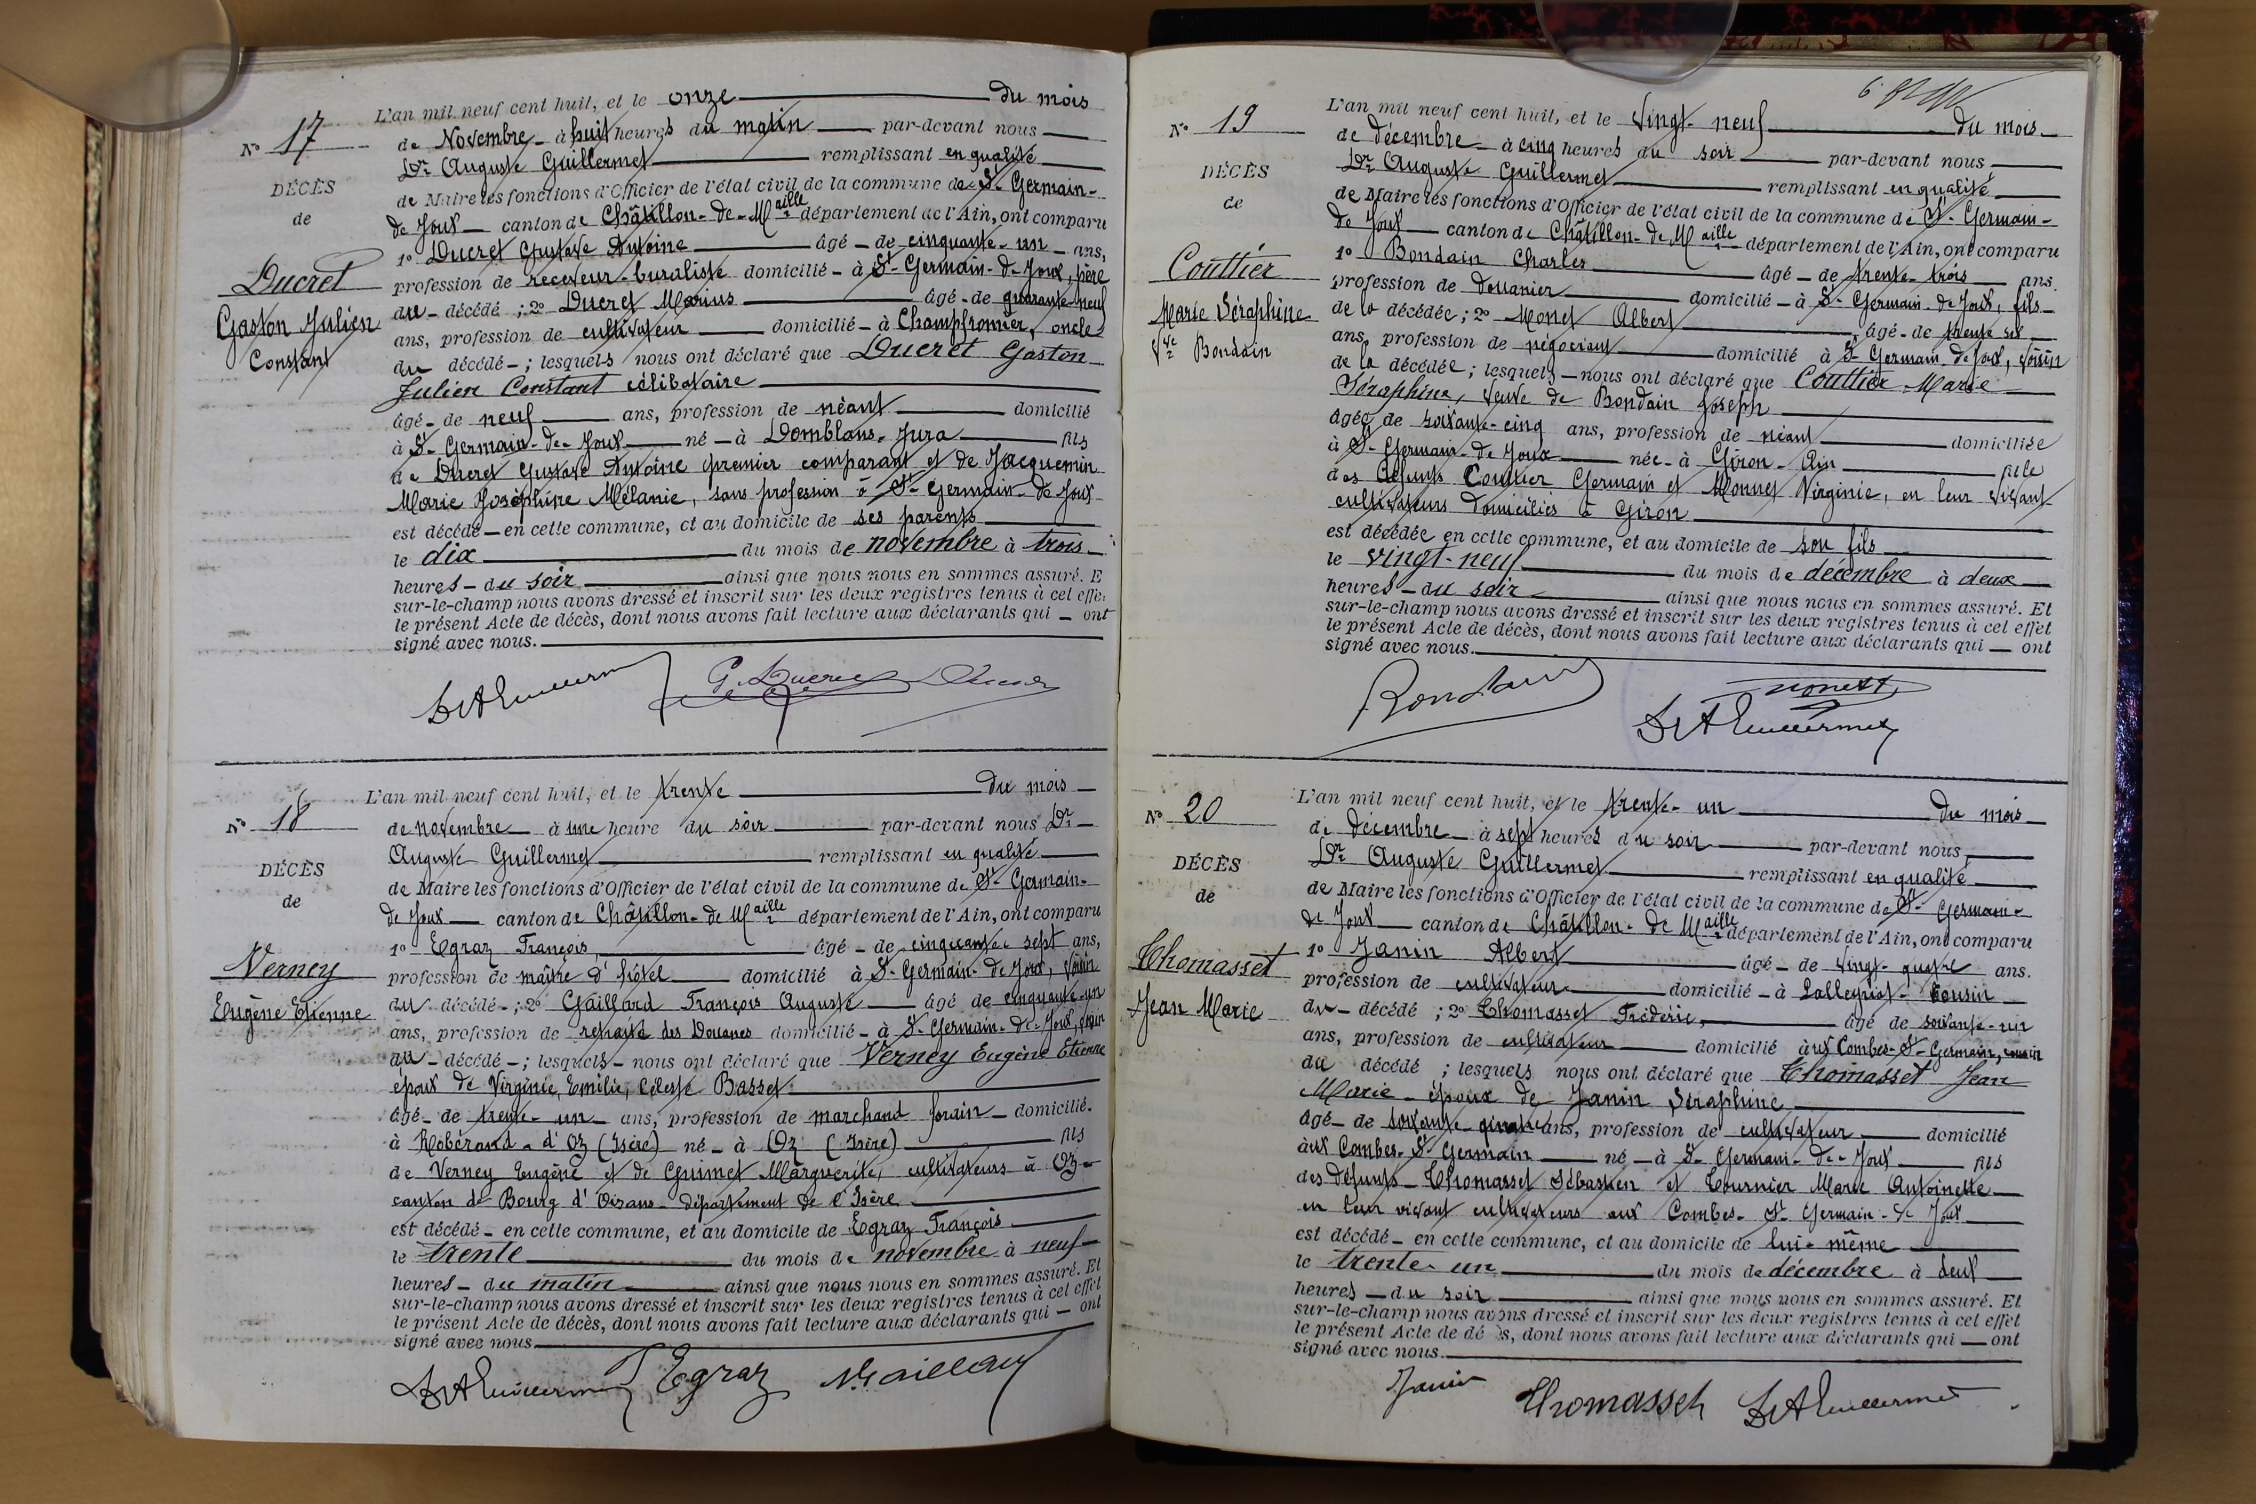 N° 17
DÉCÈS
de
Ducret
Gaston Julien
Constant
L'an mil neuf cent huit, et le onze du mois
de Novembre à huit heures du matin par-devant nous
Dr Auguste Guillermet remplissant en qualité
de Maire les fonctions d'Officier de l'état civil de la commune de St Germain-
de Joux canton de Châtillon-de-Maille département de l'Ain, ont comparu
1° Ducret Gustave Antoine âgé de cinquante-un ans,
profession de receveur-buraliste domicilié à St-Germain-de-Joux, père
du décédé ; 2° Ducret Marius âgé de quarante-neuf
ans, profession de cultivateur domicilié à Champfromier, oncle
du décédé ; lesquels nous ont déclaré que Ducret Gaston
Julien Constant célibataire
âgé de neuf ans, profession de néant domicilié
à St-Germain-de-Joux né à Domblans, Jura fils
de Ducret Gustave Antoine premier comparant et de Jacquemin
Marie Joséphine Mélanie, sans profession à St-Germain-de Joux
est décédé en cette commune, et au domicile de ses parents
le dix du mois de novembre à trois
heures du soir ainsi que nous nous en sommes assuré. E
sur-le-champ nous avons dressé et inscrit sur les deux registres tenus à cet effet
le présent Acte de décès, dont nous avons fait lecture aux déclarants qui ont
signé avec nous.
Dr A Guillermet G. Ducret Ducret
N° 18
DÉCÈS
de
Verney
Eugène Etienne
L'an mil neuf cent huit, et le trente du mois
de novembre à une heure du soir par-devant nous Dr
Auguste Guillermet remplissant en qualité
de Maire les fonctions d'Officier de l'état civil de la commune de St-Germain-
de Joux canton de Châtillon-de Maille département de l'Ain, ont comparu
1° Egraz François, âgé de cinquante-sept ans,
profession de maître d'hôtel domicilié à St-Germain-de Joux, voisin
du décédé ; 2° Gaillard François Auguste âgé de cinquante-un
ans, profession de retraité des Douanes domicilié à St-Germain-de-Joux, voisin
du décédé ; lesquels nous ont déclaré que Verney Eugène Etienne
époux de Virginie, Emilie, Céleste Basset
âgé de trente-un ans, profession de marchand forain domicilié
à Robérand-d'Oz (Isère) né à Oz (Isère) fils
de Verney Eugène et de Guimet Marguerite, cultivateurs à Oz
canton de Bourg d'Oisans département de l'Isère
est décédé en cette commune, et au domicile de Egraz François
le trente du mois de novembre à neuf
heures du matin ainsi que nous nous en sommes assuré. Et
sur-le-champ nous avons dressé et inscrit sur les deux registres tenus à cet effet
le présent Acte de décès, dont nous avons fait lecture aux déclarants qui ont
signé avec nous
Dr A Guillermet Egraz Gaillard
N° 19
DÉCÈS
de
Couttier
Marie Séraphine
Vve Bondain
L'an mil neuf cent huit, et le vingt-neuf du mois
de décembre à cinq heures du soir par-devant nous
Dr Auguste Guillermet remplissant en qualité
de Maire les fonctions d'Officier de l'état civil de la commune de St-Germain-
de Joux canton de Châtillon-de Maille département de l'Ain, ont comparu
1° Bondain Charles âgé de trente-trois ans.
profession de douanier domicilié à St-Germain-de Joux, fils
de la décédée ; 2° Monet Albert âgé de trente six
ans, profession de négociant domicilié à St-Germain-de Joux, voisin
de la décédée ; lesquels nous ont déclaré que Couttier Marie
Séraphine, veuve de Bondain Joseph
âgée de soixante-cinq ans, profession de néant domiciliée
à St-Germain-de Joux née à Giron-Ain fille
des défunts Couttier Germain et Monnet Virginie, en leur vivant
cultivateurs domiciliés à Giron
est décédée en cette commune, et au domicile de son fils
le vingt-neuf du mois de décembre à deux
heures du soir ainsi que nous nous en sommes assuré. Et
sur-le-champ nous avons dressé et inscrit sur les deux registres tenus à cet effet
le présent Acte de décès, dont nous avons fait lecture aux déclarants qui ont
signé avec nous.
Bondain Monet
Dr A Guillermet
N° 20
DÉCÈS
de
Thomasset
Jean Marie
L'an mil neuf cent huit, et le trente-un du mois
de décembre à sept heures du soir par-devant nous,
Dr Auguste Guillermet remplissant en qualité
de Maire les fonctions d'Officier de l'état civil de la commune de St-Germain-
de Joux canton de Châtillon-de Maille département de l'Ain, ont comparu
1° Janin Albert âgé de vingt-quatre ans.
profession de cultivateur domicilié à Lalleyriat-cousin
du décédé ; 2° Thomasset Frédéric, âgé de soixante-un
ans, profession de cultivateur domicilié aux Combes-St-Germain, cousin
du décédé ; lesquels nous ont déclaré que Thomasset Jean
Marie époux de Janin Séraphine
âgé de soixante ans, profession de cultivateur domicilié
aux Combes-St Germain né à St-Germain-de-Joux fils
des défunts Thomasset Sébastien et Tournier Marie Antoinette
en leur vivant cultivateurs aux Combes-St-Germain-de Joux
est décédé en cette commune, et au domicile de lui-même
le trente-un du mois de décembre à deux
heures du soir ainsi que nous nous en sommes assuré. Et
sur-le-champ nous avons dressé et inscrit sur les deux registres tenus à cet effet
le présent Acte de décès, dont nous avons fait lecture aux déclarants qui ont
signé avec nous.
Janin Thomasset Dr A Guillermet